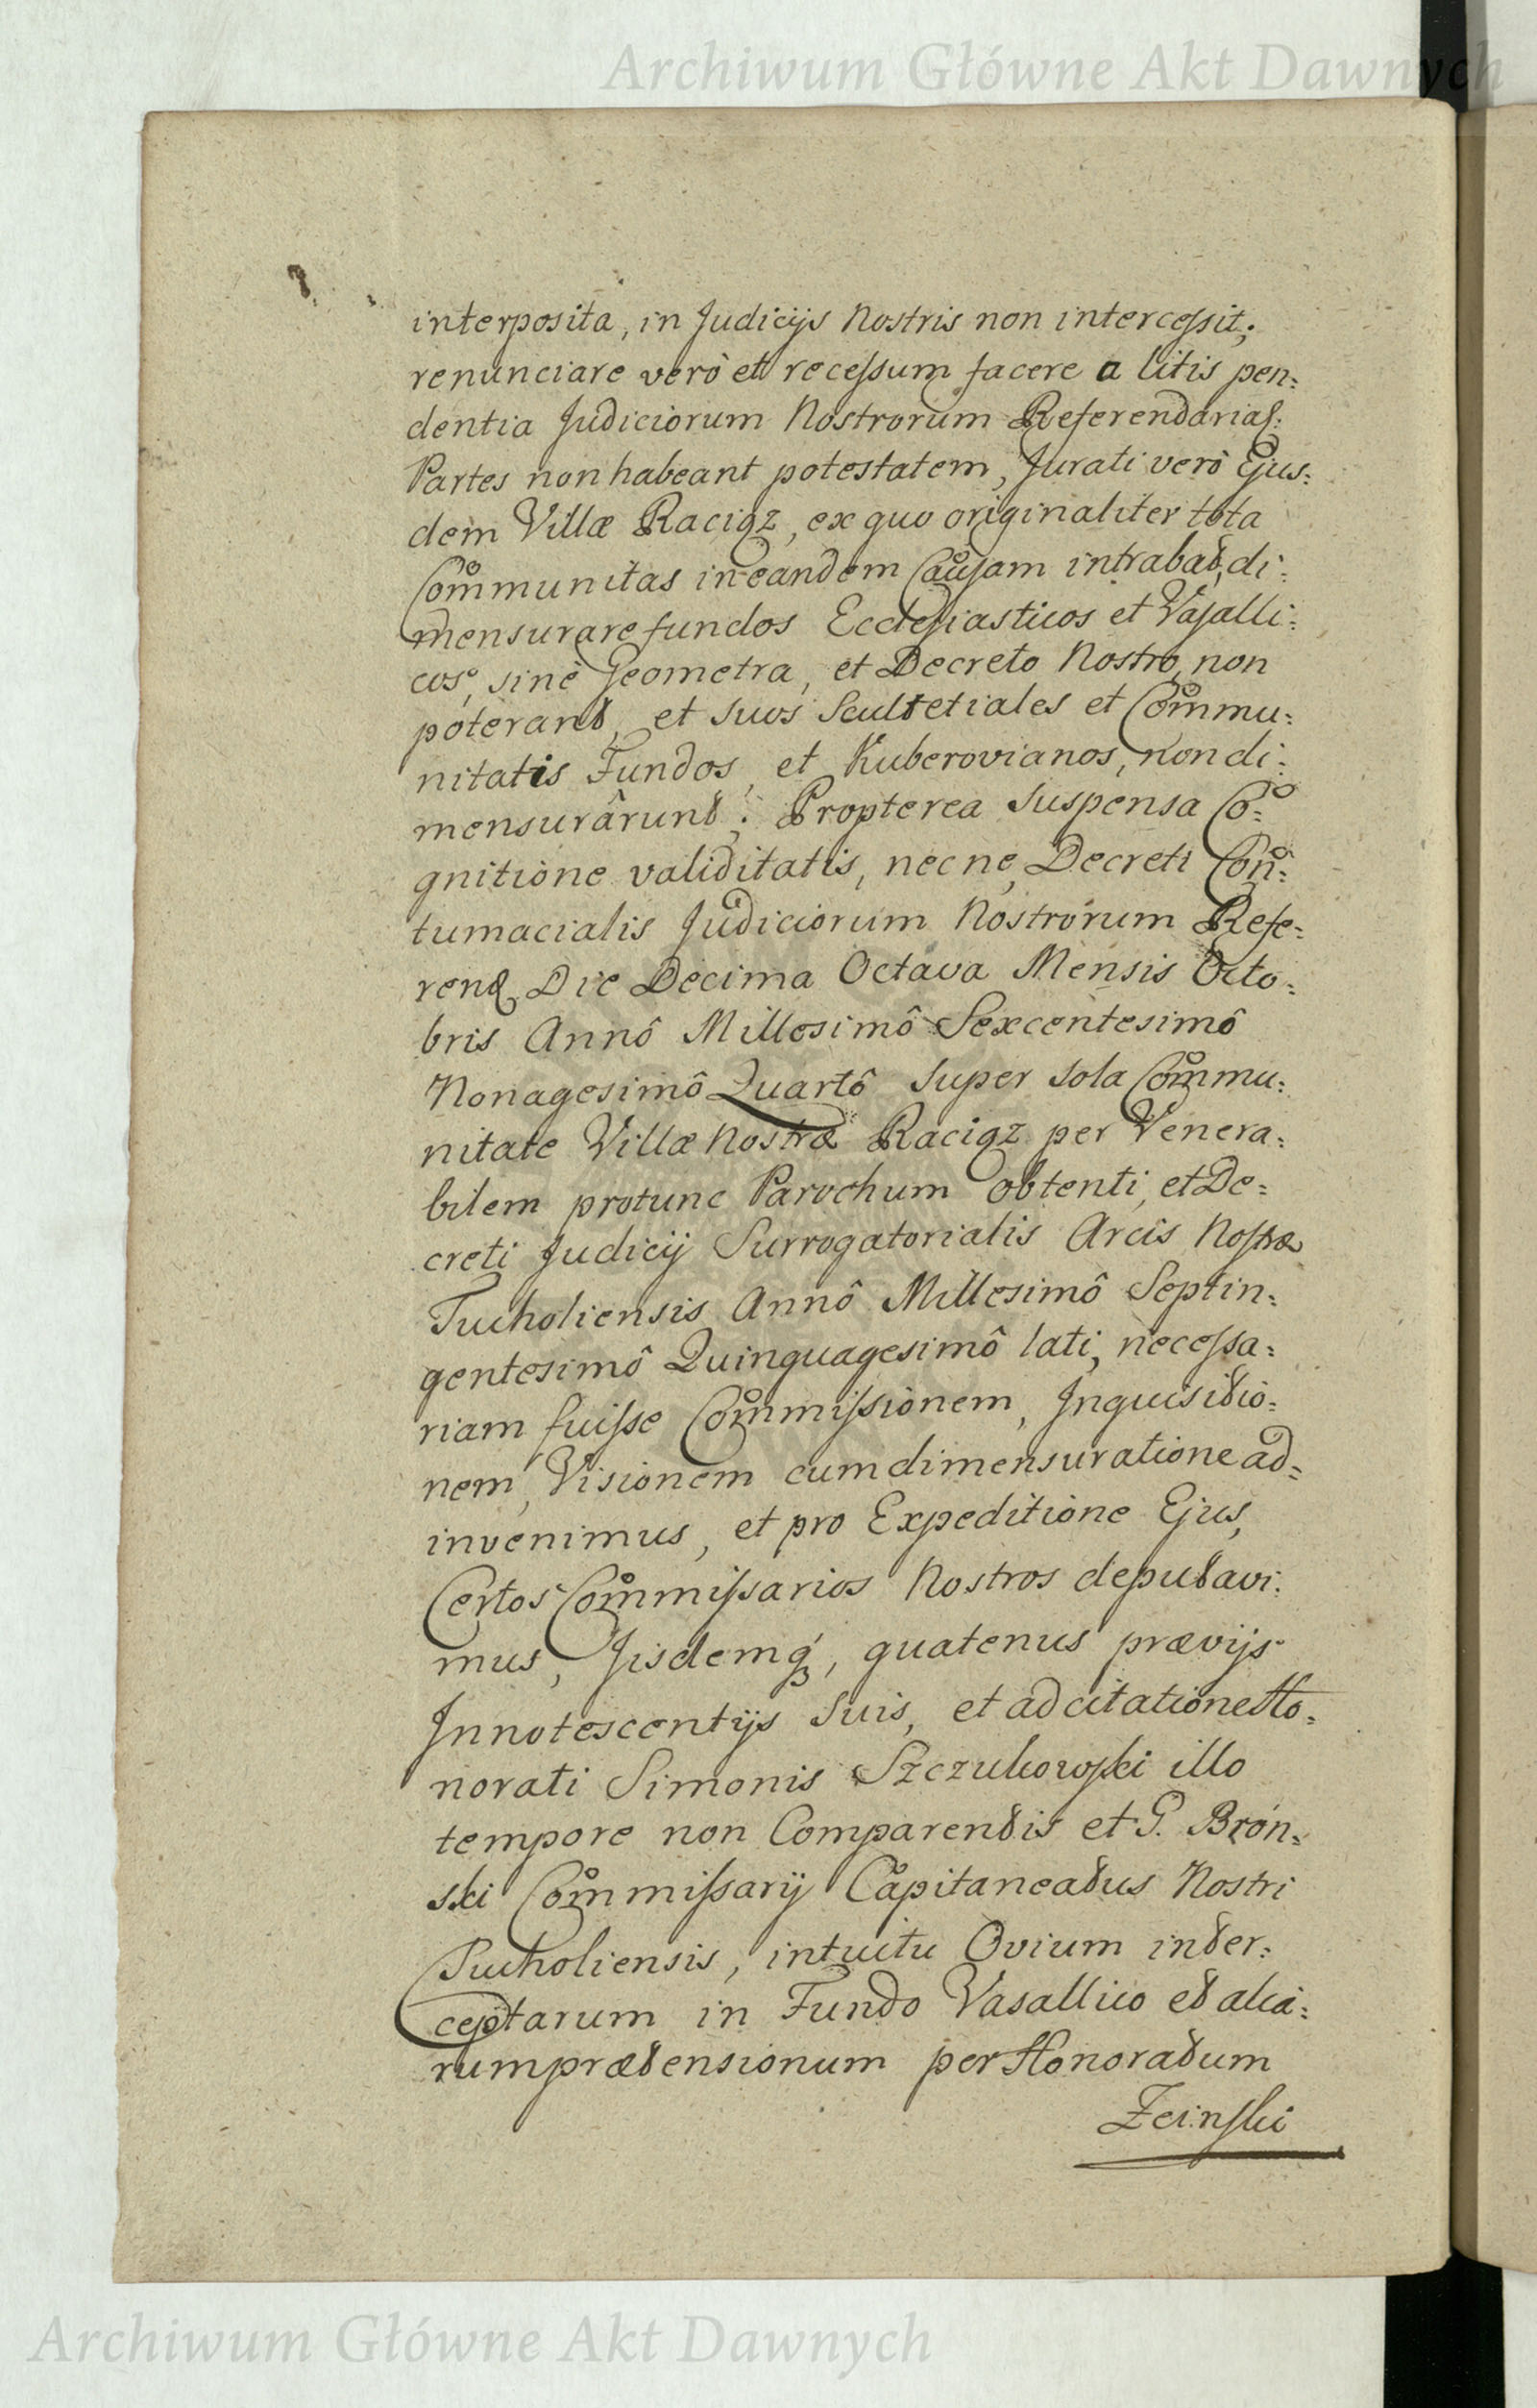 Archiwum Główne Akt Dawnych
interposita, in Judicijs Nostris non intercessit;
renunciare verò et recessum facere a litis pen:
dentia Judiciorum Nostrorum Referendarial:
Partes non habeant potestatem, Jurati verò Ejus:
dem Villæ Raciąz, ex quo originaliter tota
Communitas in eandem Causam intrabat, di:
mensurare fundos Ecclesiasticos et Vasalli:
cos, sinè Geometra, et Decreto Nostro, non
poterant, et suos Scultetiales et Commu:
nitatis Fundos, et Kuberovianos, non di:
mensurârunt; Propterea suspensa Co:
gnitione validitatis, nec ne, Decreti Con:
tumacialis Judiciorum Nostrorum Refe:
rend. Die Decima Octava Mensis Octo:
bris Annô Millesimô Sexcentesimô
Nonagesimô Quartô super sola Commu:
nitate Villæ Nostræ Raciąz per Venera:
bilem protunc Parochum obtenti, et De:
creti Judicij Surrogatorialis Arcis Nostræ
Tucholiensis Annô Millesimô Septin:
gentesimô Quinquagesimô lati, necessa:
riam fuisse Commissionem, Inquisitio:
nem, Visionem cum dimensuratione ad:
invenimus, et pro Expeditione Ejus,
Certos Commissarios Nostros deputavi:
mus, Jisdemq́, quatenus prævijs
Innotescentijs suis, et ad citatione Ho:
norati Simonis Szczukowski illo
tempore non Comparentis et G. Broń:
ski Commissarij Capitaneatus Nostri
Tucholiensis, intuitu Ovium inter:
ceptarum in Fundo Vasallico et alia:
rum prætensionum per Honoratum
Zeinski
Archiwum Główne Akt Dawnych